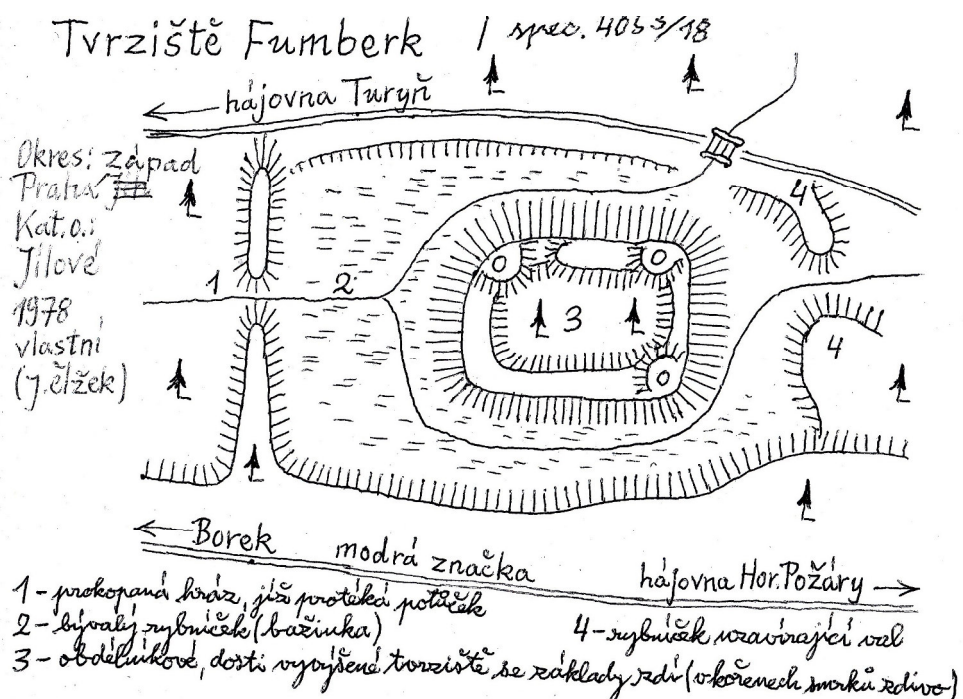 Tvrziště Fumberk
spec. 4053/18
hájovna Turyň
Okres: západ
Praha
Kat.o.:
Jílové
1978
vlastní
(J.Ělžek)
1
2
3
4
4
Borek
modrá značka
hájovna Hor.Požáry
1 - prokopaná hráz, jíž protéká potůček
2 - bývalý rybníček (bažinka)
4 - rybníček uzavírající val
3 - obdélníkové, dosti vyvýšené tvrziště se základy zdí (v kořenech smrků zdivo)